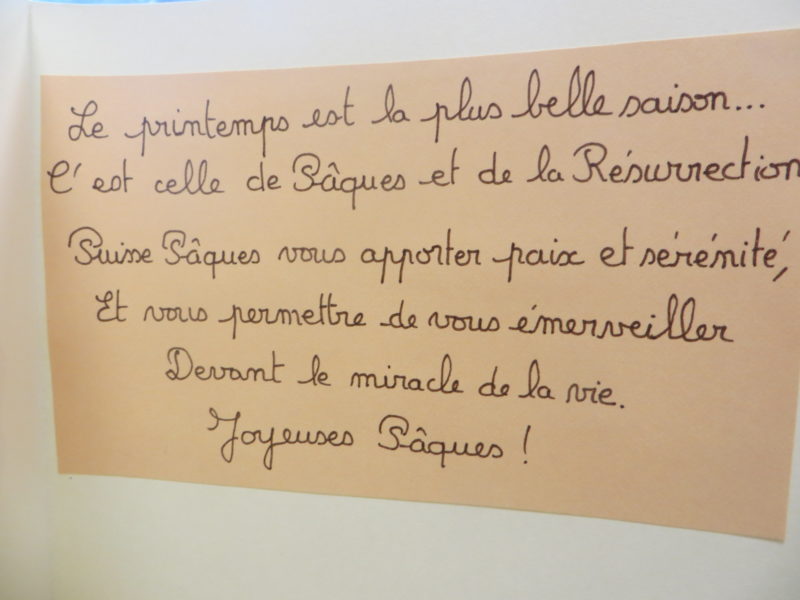 Le printemps est la plus belle saison...
C'est celle de Pâques et de la Résurrection
Puisse Pâques vous apporter paix et sérénité,
Et vous permettre de vous émerveiller
Devant le miracle de la vie.
Joyeuses Pâques !